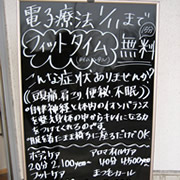 電子療法 1/11まで
フットタイム 無料
こんな症状ありませんか?
頭痛 肩こり 便秘 不眠
自律神経と体内のイオンバランス
を整え身体の中からキレイになる力
をつけてくれるのです。
服を着たまま椅子に座るだけでOK
ボディケア アロマオイルケア
20分 2,100yen〜 40分 4500yen
フットケア まつ毛カール